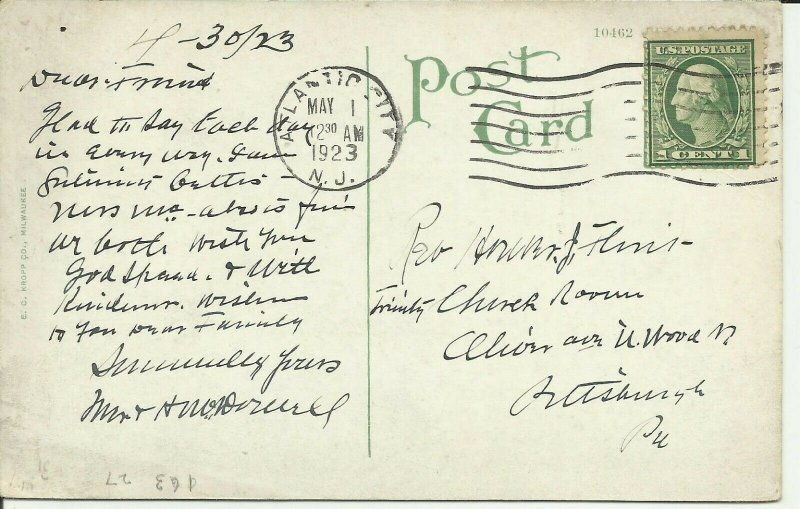 4-30/23
Dear Friend
Glad to say Each day
in Every way. I am
Getting Better -
Mrs Mc - also is fine
we both wish you
God speed. & With
Kindness. Wishes
to You Dear Family
Sincerely Yours
Mr & H
E. C. KROPP CO., MILWAUKEE
10462
Post
Card
ATLANTIC CITY
MAY 1
12 30 AM
1923
N. J.
U.S. POSTAGE
1 CENT 1
Rev J.
Trinity Church House
Oliver ave & Wood St
Pittsburgh
Pa
463 27